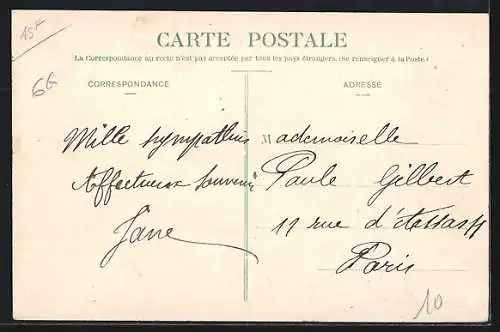 15F
66
CARTE POSTALE
La Correspondance au recto n'est pas acceptée par tous les pays étrangers. (Se renseigner à la Poste.)
CORRESPONDANCE
ADRESSE
Mille sympathies
Affectueux souvenir
Jane
Mademoiselle
Paule Gilbert
11 rue d'Assas
Paris
10